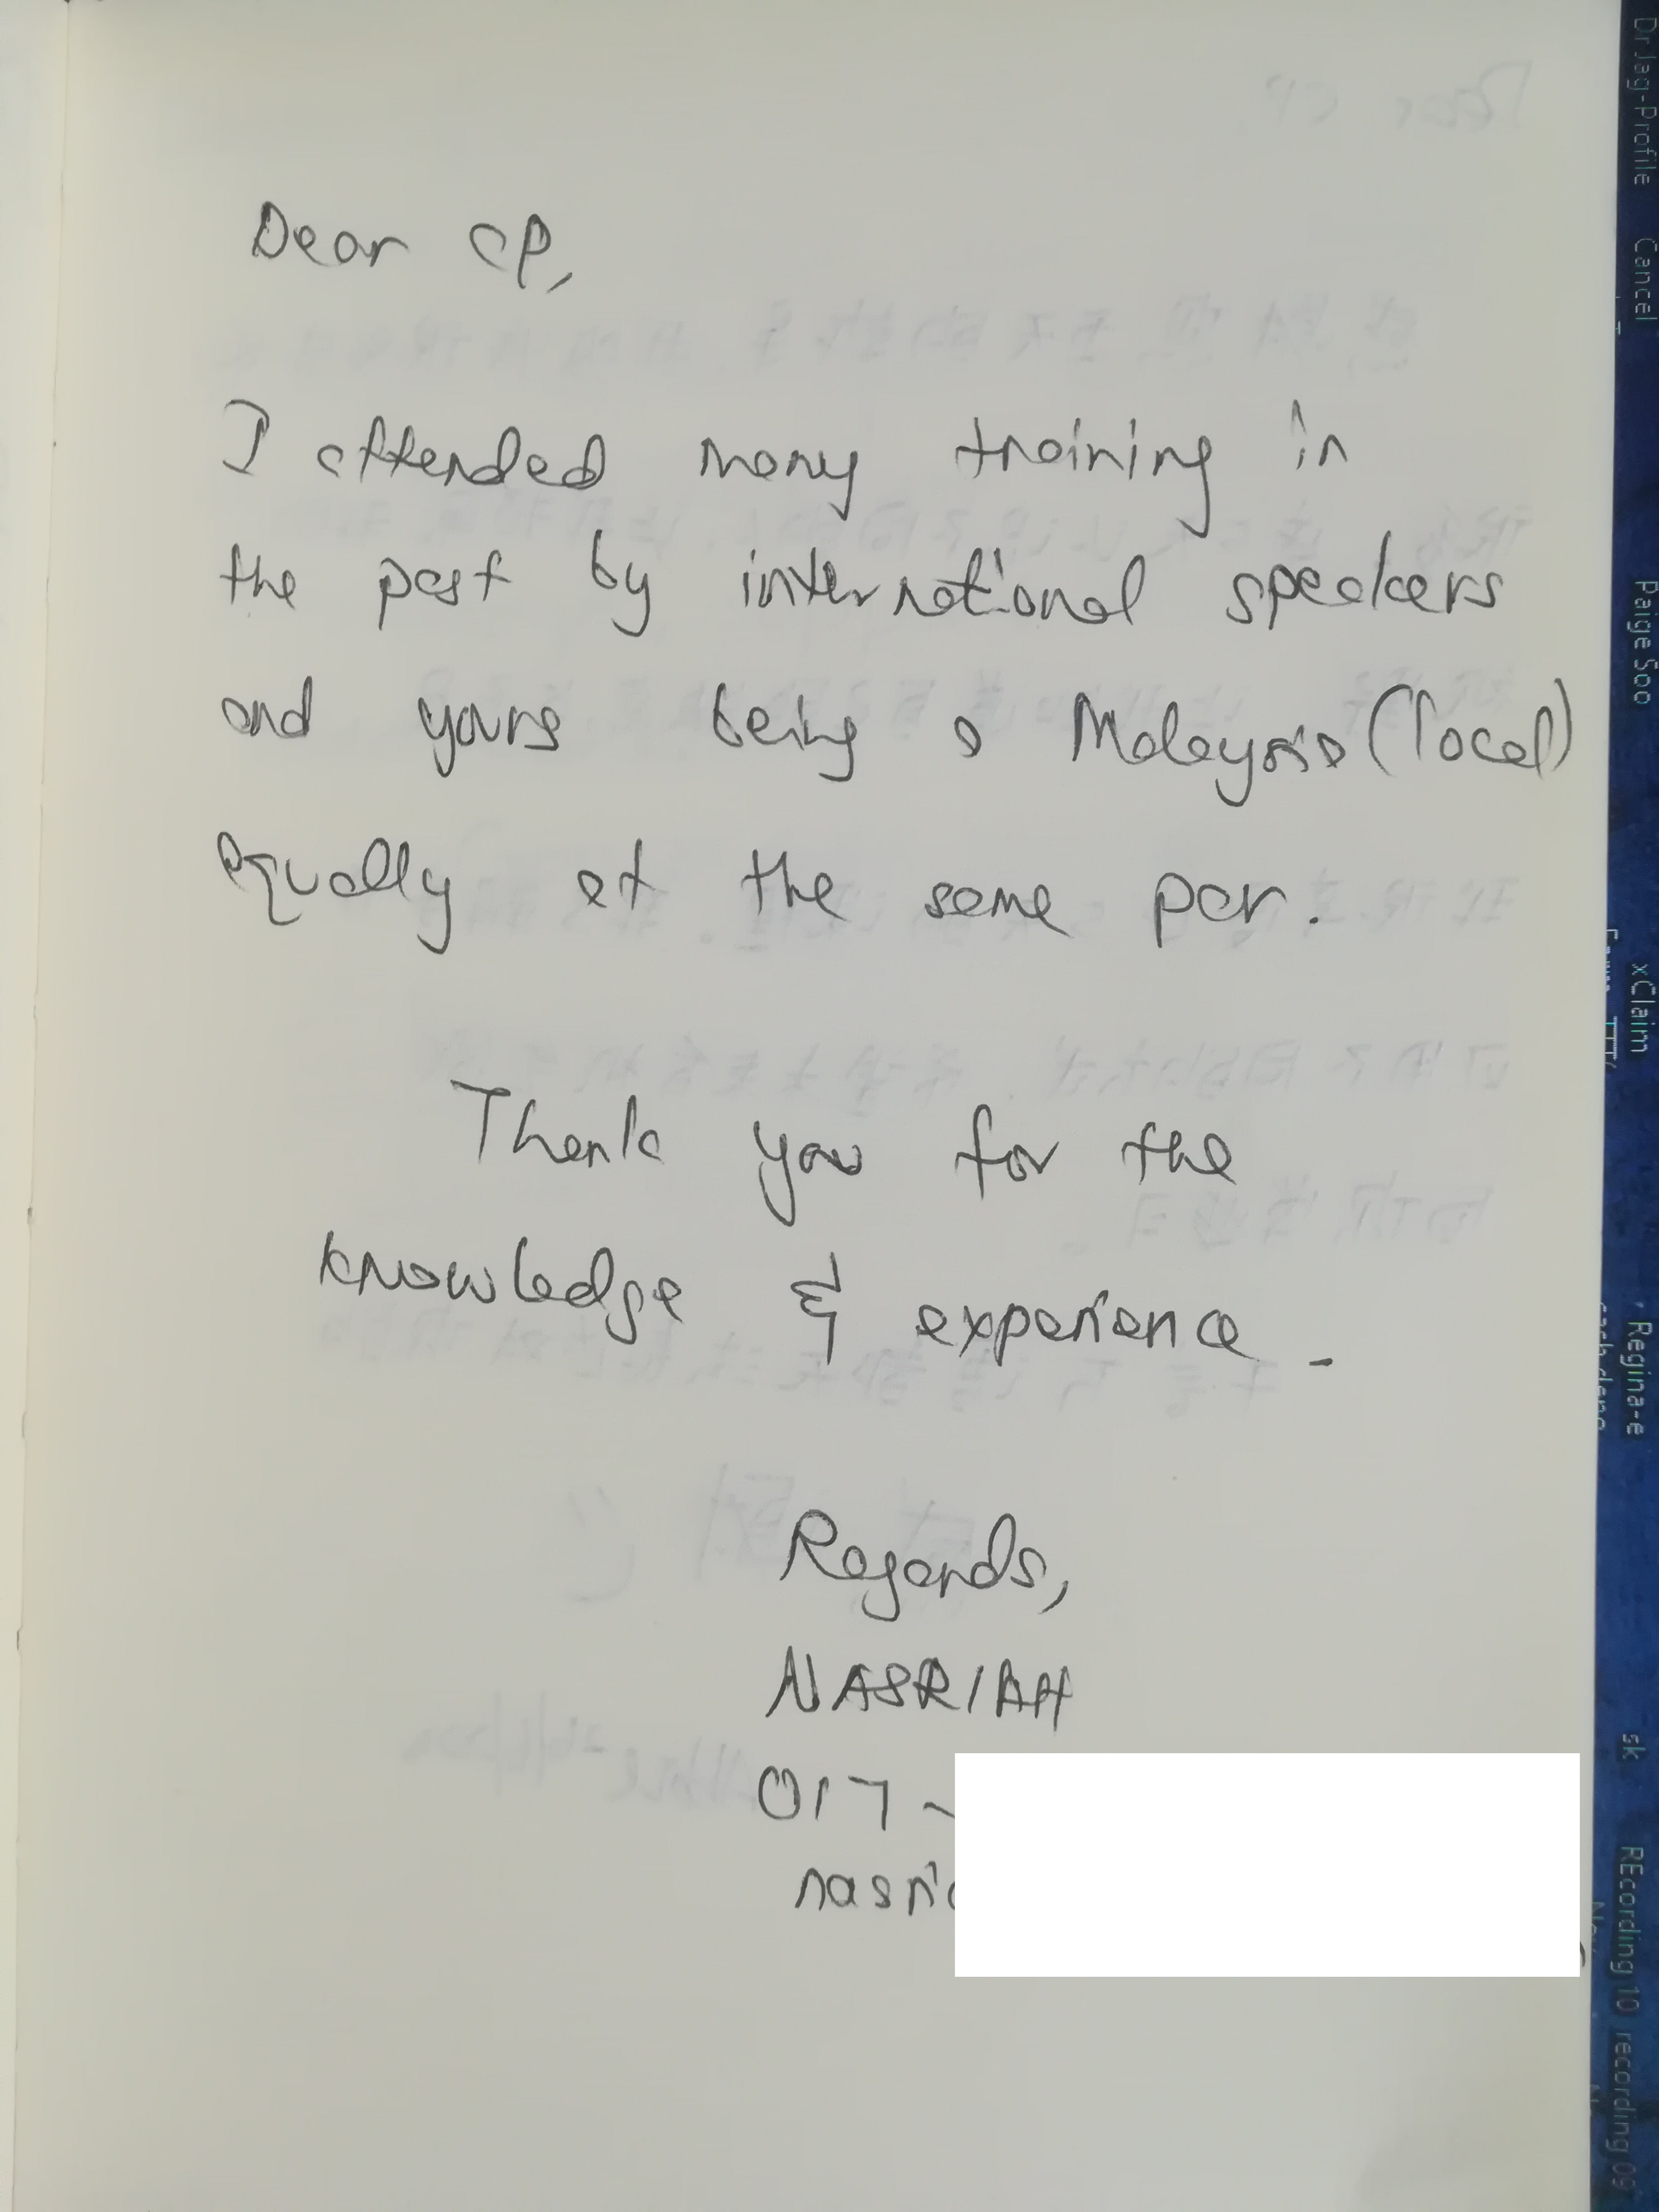 Dear CP,
I attended many training in
the past by international speakers
and yours being a Malaysia (local)
equally at the same par.
Thank you for the
knowledge & experience.
Regards,
NASRIAH
017-
nasria
Dr.Jag-Profile
Cancel
Paige Soo
xClaim
, Regina-e
sk
REcording 10 recording 09